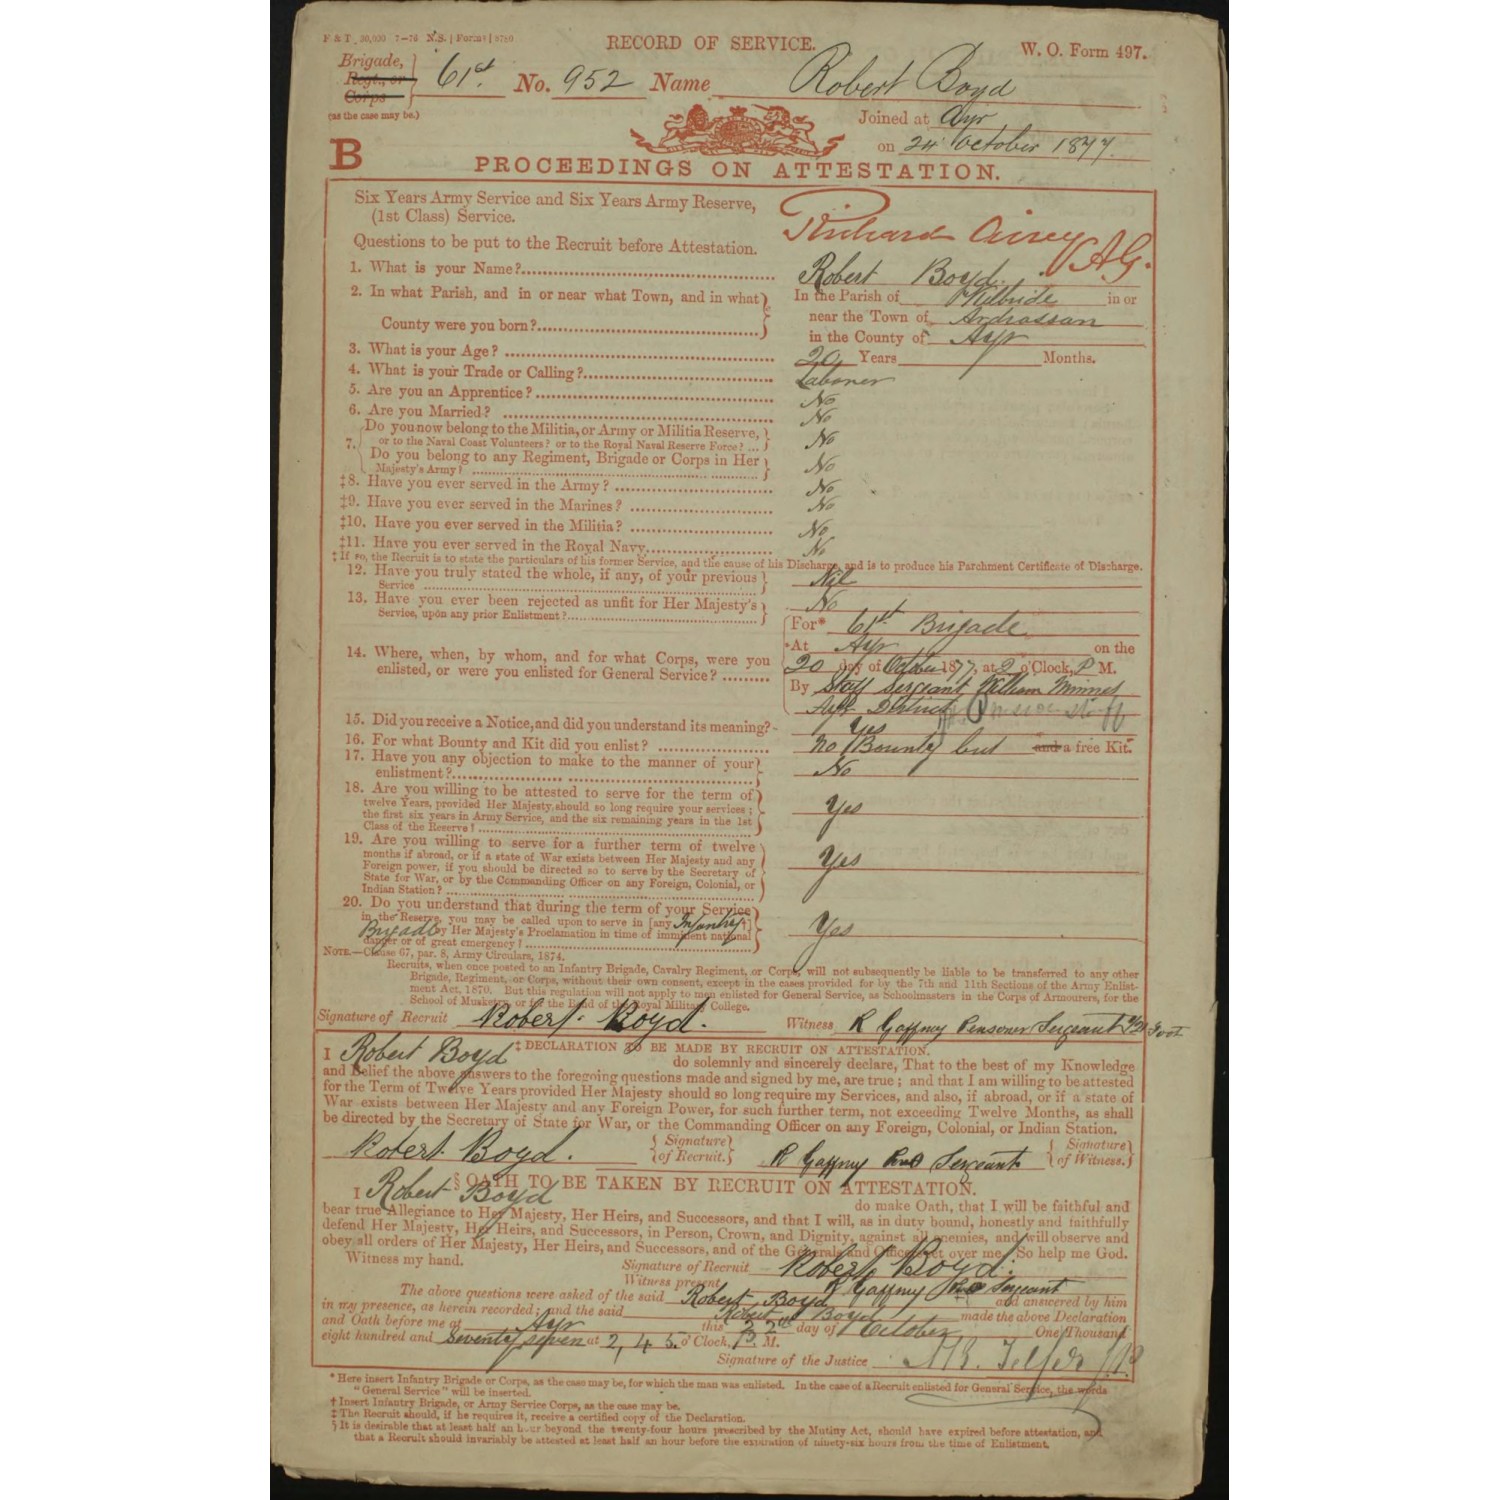 F & T 30,000 7—76 N.S. | Form | 8780
RECORD OF SERVICE.
W. O. Form 497.
Brigade,
Regt., or
Corps
(as the case may be.)
61st. No. 952 Name Robert Boyd
Joined at Ayr
on 24 October 1877.
B PROCEEDINGS ON ATTESTATION.
Six Years Army Service and Six Years Army Reserve,
(1st Class) Service.
Richard Airey AG.
Questions to be put to the Recruit before Attestation.
1. What is your Name? Robert Boyd.
2. In what Parish, and in or near what Town, and in what
County were you born?
In the Parish of Kilbride in or
near the Town of Ardrossan
in the County of Ayr
3. What is your Age? 20 Years Months.
4. What is your Trade or Calling? Laborer
5. Are you an Apprentice? No
6. Are you Married? No
7. Do you now belong to the Militia, or Army or Militia Reserve,
or to the Naval Coast Volunteers? or to the Royal Naval Reserve Force? ... No
Do you belong to any Regiment, Brigade or Corps in Her
Majesty's Army? No
‡8. Have you ever served in the Army? No
‡9. Have you ever served in the Marines? No
‡10. Have you ever served in the Militia? No
‡11. Have you ever served in the Royal Navy. No
‡ If so, the Recruit is to state the particulars of his former Service, and the cause of his Discharge, and is to produce his Parchment Certificate of Discharge.
12. Have you truly stated the whole, if any, of your previous
Service Nil
13. Have you ever been rejected as unfit for Her Majesty's
Service, upon any prior Enlistment? No
14. Where, when, by whom, and for what Corps, were you
enlisted, or were you enlisted for General Service?
For* 61st. Brigade
*At Ayr on the
20 day of October 1877, at 2 o'Clock, P M.
By Staff Sergeant William
Ayr District
15. Did you receive a Notice, and did you understand its meaning? Yes
16. For what Bounty and Kit did you enlist? no Bounty but and a free Kit.
17. Have you any objection to make to the manner of your
enlistment? No
18. Are you willing to be attested to serve for the term of
twelve Years, provided Her Majesty should so long require your services;
the first six years in Army Service, and the six remaining years in the 1st
Class of the Reserve? Yes
19. Are you willing to serve for a further term of twelve
months if abroad, or if a state of War exists between Her Majesty and any
Foreign power, if you should be directed so to serve by the Secretary of
State for War, or by the Commanding Officer on any Foreign, Colonial, or
Indian Station? Yes
20. Do you understand that during the term of your Service
in the Reserve, you may be called upon to serve in [any Infantry†]
Brigade by Her Majesty's Proclamation in time of imminent national
danger or of great emergency? Yes
NOTE.—Clause 67, par. 8, Army Circulars, 1874.
Recruits, when once posted to an Infantry Brigade, Cavalry Regiment, or Corps, will not subsequently be liable to be transferred to any other
Brigade, Regiment, or Corps, without their own consent, except in the cases provided for by the 7th and 11th Sections of the Army Enlist-
ment Act, 1870. But this regulation will not apply to men enlisted for General Service, as Schoolmasters in the Corps of Armourers, for the
School of Musketry, or for the Band of the Royal Military College.
Signature of Recruit Robert Boyd. Witness R Gaffney Pensioner Sergeant Foot
‡ DECLARATION TO BE MADE BY RECRUIT ON ATTESTATION.
I Robert Boyd do solemnly and sincerely declare, That to the best of my Knowledge
and Belief the above answers to the foregoing questions made and signed by me, are true; and that I am willing to be attested
for the Term of Twelve Years provided Her Majesty should so long require my Services, and also, if abroad, or if a state of
War exists between Her Majesty and any Foreign Power, for such further term, not exceeding Twelve Months, as shall
be directed by the Secretary of State for War, or the Commanding Officer on any Foreign, Colonial, or Indian Station.
Robert Boyd. Signature of Recruit. R Gaffney Sergeant Signature of Witness.
§ OATH TO BE TAKEN BY RECRUIT ON ATTESTATION.
I Robert Boyd do make Oath, that I will be faithful and
bear true Allegiance to Her Majesty, Her Heirs, and Successors, and that I will, as in duty bound, honestly and faithfully
defend Her Majesty, Her Heirs, and Successors, in Person, Crown, and Dignity, against all enemies, and will observe and
obey all orders of Her Majesty, Her Heirs, and Successors, and of the Generals and Officers set over me. So help me God.
Witness my hand. Signature of Recruit Robert Boyd.
Witness present R Gaffney Sergeant
The above questions were asked of the said Robert Boyd and answered by him
in my presence, as herein recorded; and the said Robert Boyd made the above Declaration
and Oath before me at Ayr this 22nd day of October One Thousand
eight hundred and seventy seven at 2,45 o'Clock, P. M.
Signature of the Justice
* Here insert Infantry Brigade or Corps, as the case may be, for which the man was enlisted. In the case of a Recruit enlisted for General Service, the words
"General Service" will be inserted.
† Insert Infantry Brigade, or Army Service Corps, as the case may be.
‡ The Recruit should, if he requires it, receive a certified copy of the Declaration.
§ It is desirable that at least half an hour beyond the twenty-four hours prescribed by the Mutiny Act, should have expired before attestation, and
that a Recruit should invariably be attested at least half an hour before the expiration of ninety-six hours from the time of Enlistment.